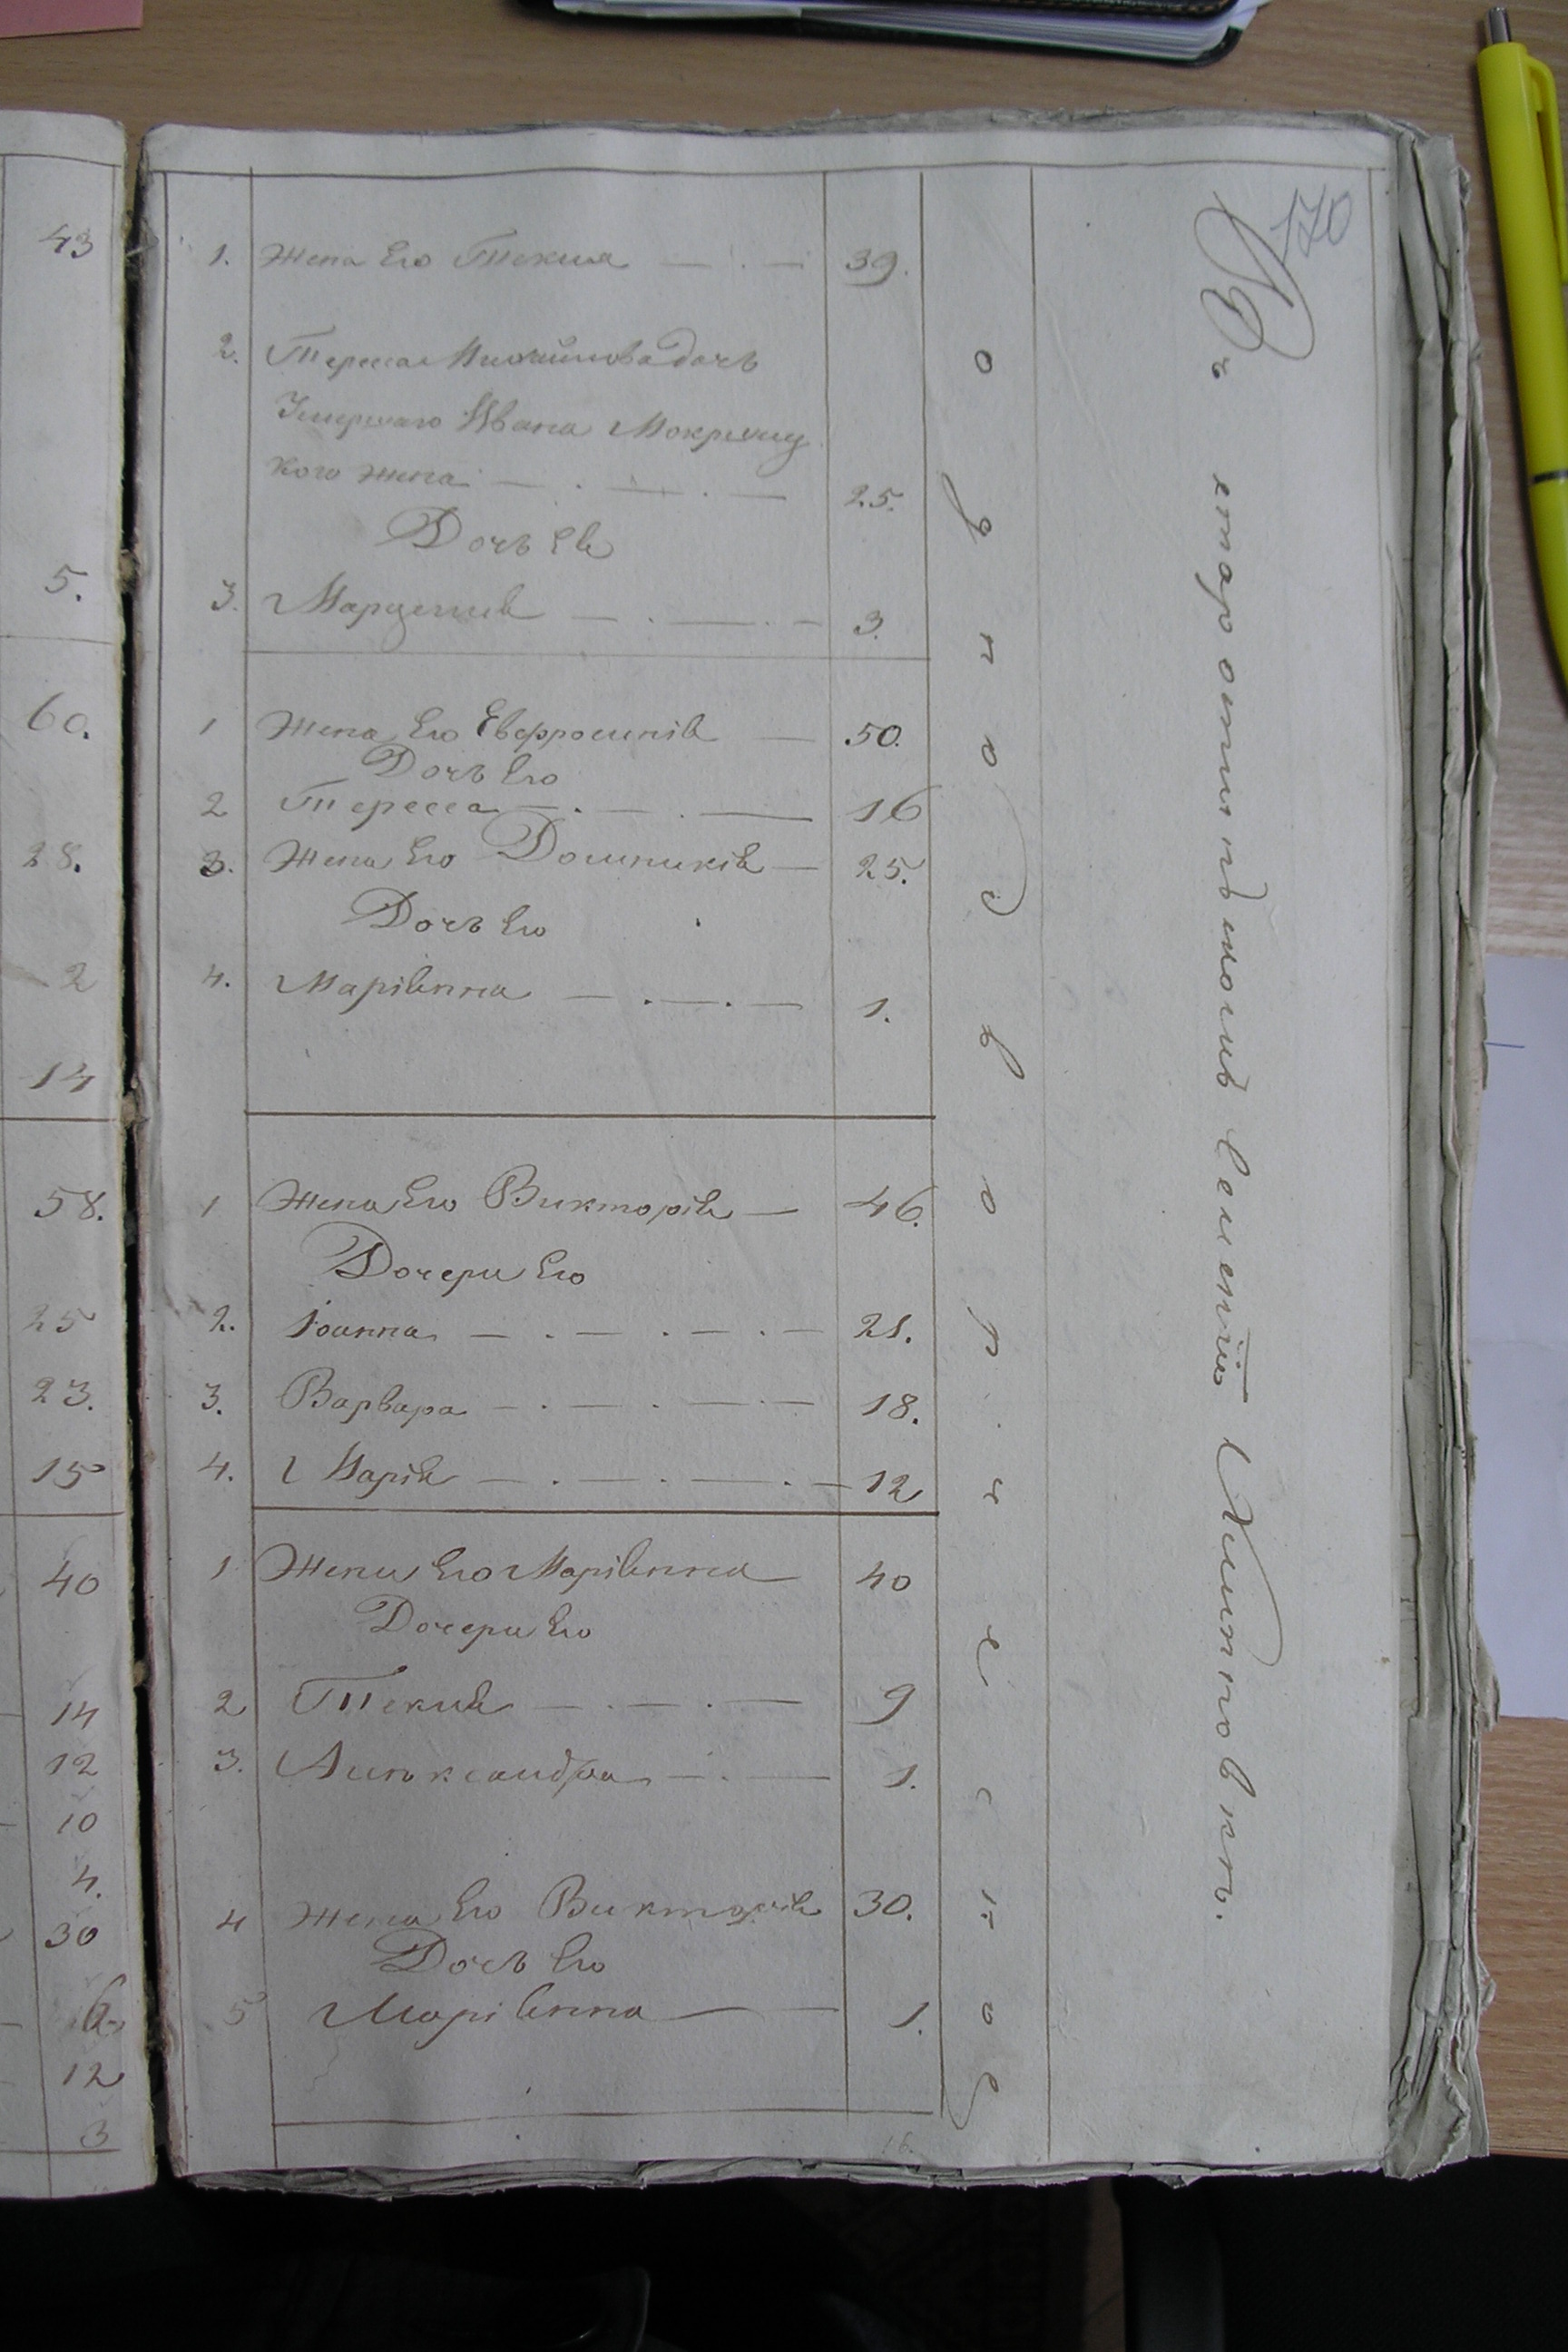 170
43
5.
60.
28.
2
14
58.
25
23.
15
40
14
12
10
4.
30
6.
12
3
1. Жена Его Текля — . — 39.
2. Тересса Михайлова дочь
Умершаго Ивана Мокржиц
кого жена — . — . — 25.
Дочь Ея
3. Марцелля — . — . — 3.
1 Жена Его Евфросинія — 50.
Дочь Его
2 Тересса — . — . — 16
3. Жена Его Доминикія — 25.
Дочь Его
4. Маріянна — . — . — 1.
1 Жена Его Викторія — 46.
Дочери Его
2. Іоанна — . — . — . — 21.
3. Варвара — . — . — . — 18.
4. Марія — . — . — . — 12
1 Жена Его Маріянна — 40
Дочери Его
2 Текля — . — . — 9
3. Алѣксандра — . — 1.
4 Жена Его Викторія 30.
Дочь Его
5 Маріянна — — 1.
16.
однодворческое
Въ старостинскомъ селеніи